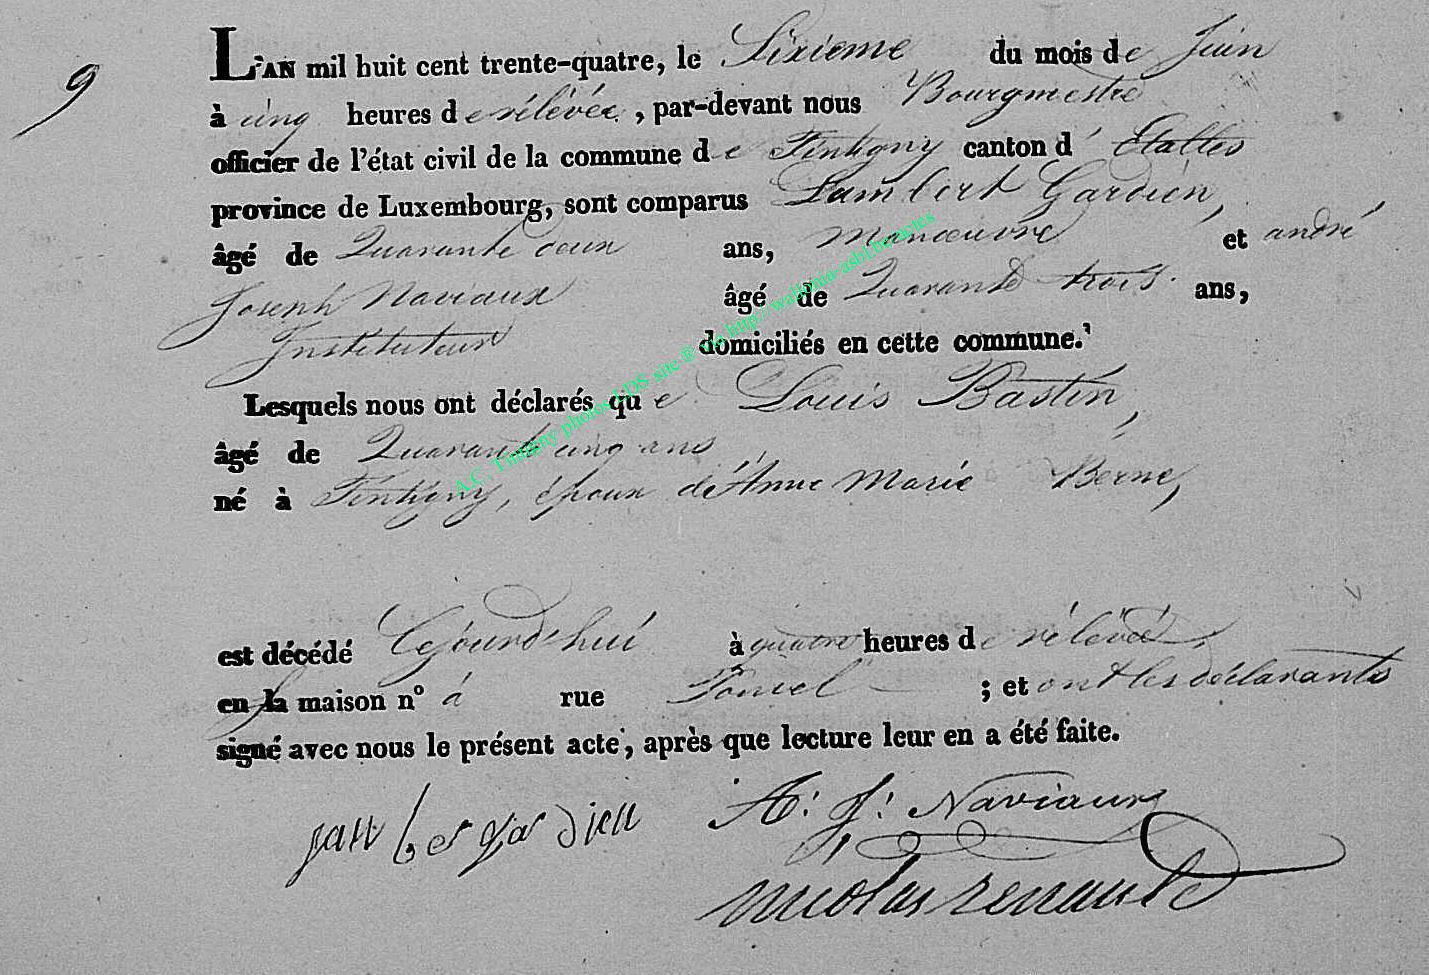 9
L'AN mil huit cent trente-quatre, le Sixieme du mois de Juin
à cinq heures de rélévée, par-devant nous Bourgmestre
officier de l'état civil de la commune de Tintigny canton d'Etalles
province de Luxembourg, sont comparus Lambert Gardien,
âgé de Quarante deux ans, manoeuvre et andré
Joseph Naviaux âgé de Quarante trois ans,
Instituteur domiciliés en cette commune.
Lesquels nous ont déclarés que Louis Bastin,
âgé de Quarante cinq ans
né à Tintigny, époux de Anne Marie Berne,
est décédé Cejourd'hui à quatre heures de rélévée,
en sa maison n° à rue Poncel ; et ont les déclarants
signé avec nous le présent acte, après que lecture leur en a été faite.
gardien A: J: Naviaux
nicolas renauld
A.C. Tintigny photos LDS site ® via http://wallonia-asbl.be/actes